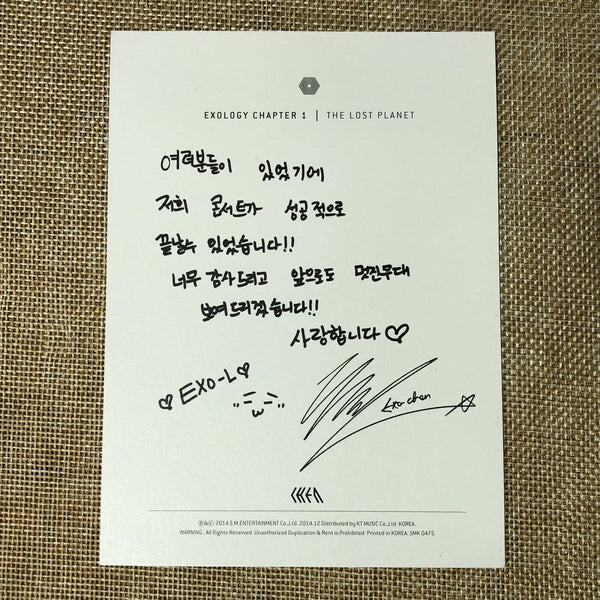 EXOLOGY CHAPTER 1 | THE LOST PLANET
여러분들이 있었기에
저희 콘서트가 성공적으로
끝날수 있었습니다!!
너무 감사드리고 앞으로도 멋진무대
보여드리겠습니다!!
사랑합니다♡
♡ EXO-L♡
Exo-chen
CHEN
℗&© 2014 S.M.ENTERTAINMENT Co.,Ltd. 2014.12 Distributed by KT MUSIC Co.,Ltd. KOREA.
WARNING : All Rights Reserved. Unauthorized Duplication & Rent is Prohibited. Printed in KOREA. SMK 0475